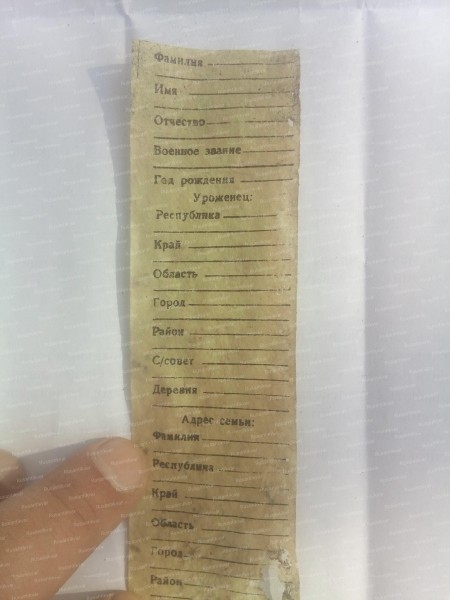 Фамилия
Имя
Отчество
Военное звание
Год рождения
Уроженец:
Республика
Край
Область
Город
Район
С/совет
Деревня
Адрес семьи:
Фамилии
Республика
Край
Область
Город
Район